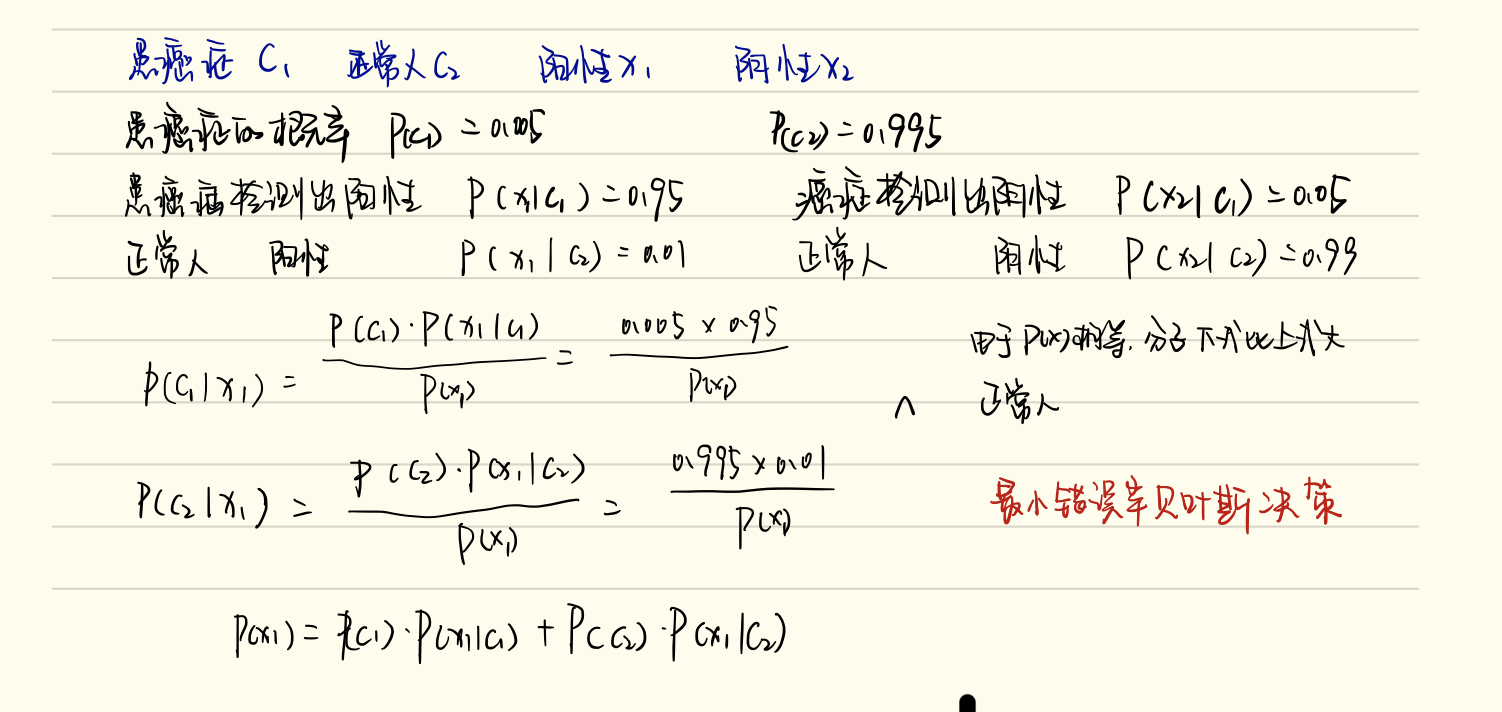 患癌症 C₁ 正常人 C₂ 阳性 x₁ 阴性 x₂
患癌症的概率 P(C₁) = 0.005 P(C₂) = 0.995
患癌症检测出阳性 P(x₁|C₁) = 0.95 癌症检测出阴性 P(x₂|C₁) = 0.05
正常人 阳性 P(x₁|C₂) = 0.01 正常人 阴性 P(x₂|C₂) = 0.99
P(C₁|x₁) = P(C₁)·P(x₁|C₁) / P(x₁) = 0.005 × 0.95 / P(x₁) 由于P(x)相等, 分子下式比上式大
∧ 正常人
P(C₂|x₁) = P(C₂)·P(x₁|C₂) / P(x₁) = 0.995 × 0.01 / P(x₁) 最小错误率贝叶斯决策
P(x₁) = P(C₁)·P(x₁|C₁) + P(C₂)·P(x₁|C₂)